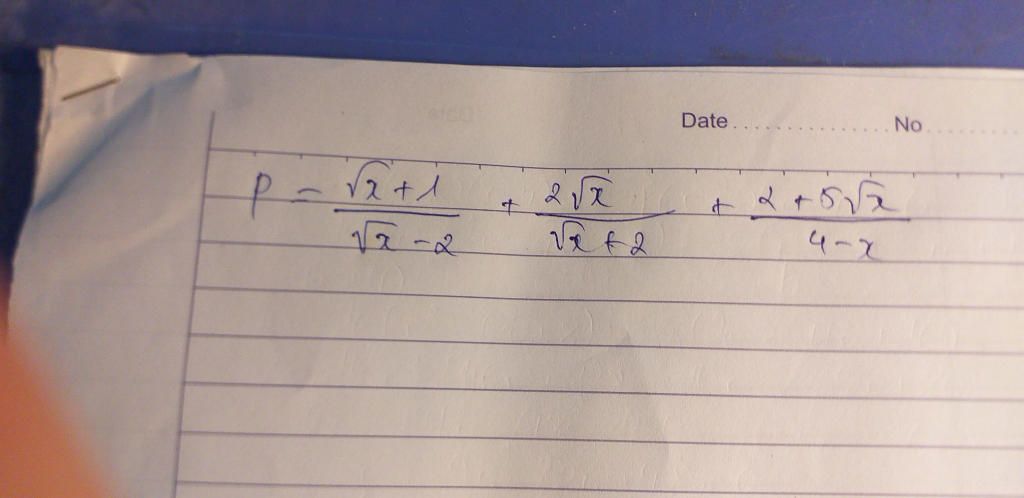 Date.............. No..........
P = \frac{\sqrt{x}+1}{\sqrt{x}-2} + \frac{2\sqrt{x}}{\sqrt{x}+2} + \frac{2+5\sqrt{x}}{4-x}